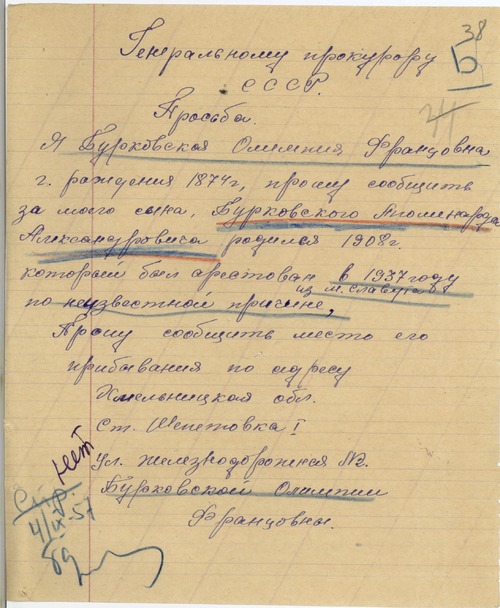 38
Б
Генеральному прокурору
СССР.
Просьба.
Я Бурковская Олимпия Францовна
г. раждения 1874г, прошу сообщить
за моего сына, Бурковского
Александровича родился 1908г.
который был арестован в 1937 году
из м. Славута
по неизвестной причине,
Прошу сообщить место его
прибывания по адресу
Хмельницкая обл.
Ст. Шепетовка I
ул. Железнодорожная №2.
Бурковской Олимпии
Францовны.
нет
4/IX-57